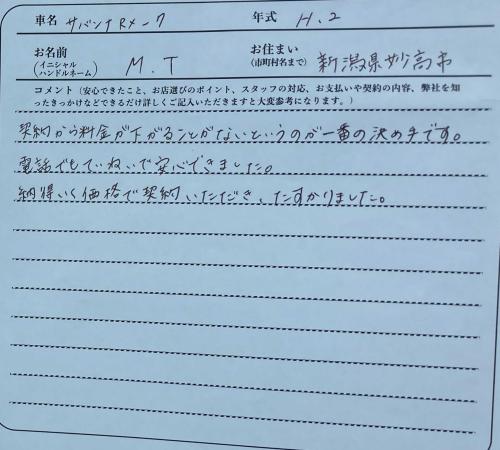 車名 サバンナRX-7 年式 H.2
お名前 (イニシャル ハンドルネーム) M.T お住まい (市町村名まで) 新潟県妙高市
コメント（安心できたこと、お店選びのポイント、スタッフの対応、お支払いや契約の内容、弊社を知
ったきっかけなどできるだけ詳しくご記入いただきますと大変参考になります。）
契約から料金が下がることがないというのが一番の決め手です。
電話でもていねいで安心できました。
納得いく価格で契約いただき、たすかりました。